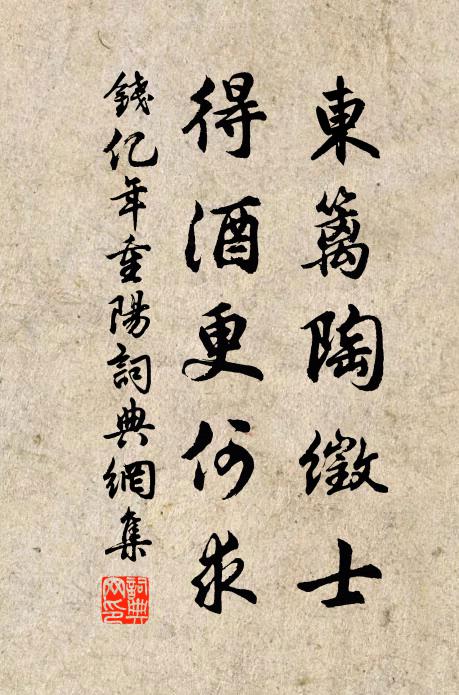 東籬陶徵士
得酒更何求
錢亿年重陽詞典網集
詞典
网印